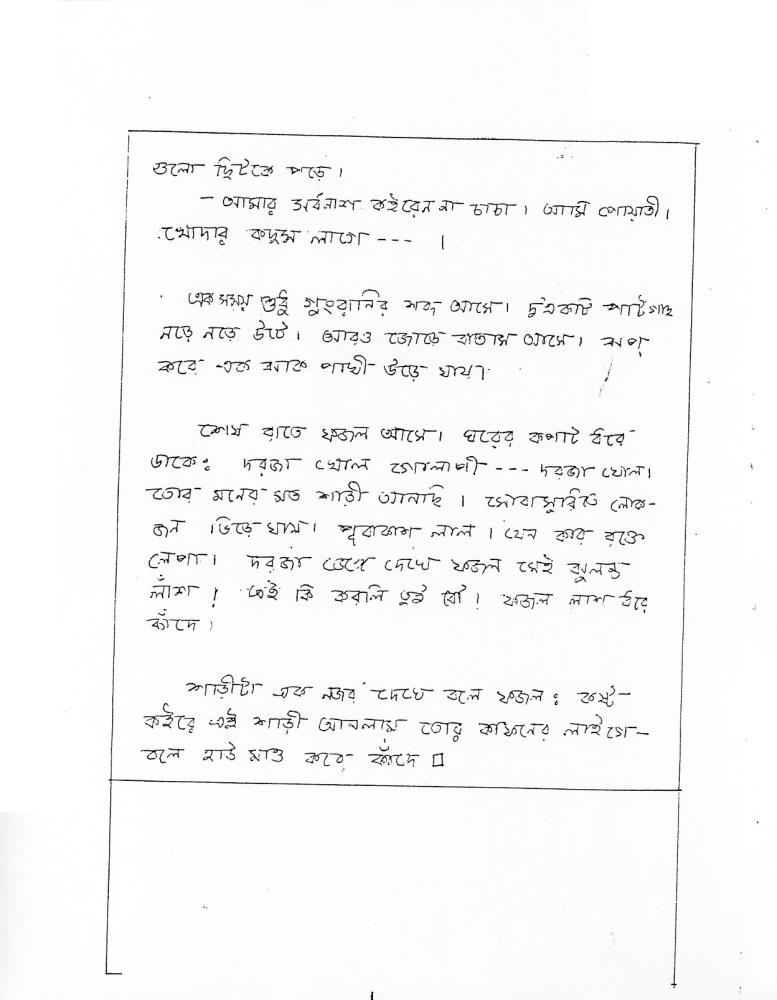 গুলো ছিটকে পড়ে।
– আমার সর্বনাশ কইরেন না চাচা। আমি পোয়াতী।
খোদার কসম লাগে --- ।
এক সময় শুধু গুংরানির শব্দ আসে। দুএকটি পাটগাছ
নড়ে নড়ে উঠে। আরও জোড়ে বাতাস আসে। ঝপ্
করে এক ঝাক পাখী উড়ে যায়।
শেষ রাতে ফজল আসে। ঘরের কপাট ধরে
ডাকে: দরজা খোল গোলাপী --- দরজা খোল।
তোর মনের মত শাড়ী আনছি। সোরাসুরিতে লোক-
জন ভিড়ে যায়। পূবাকাশ লাল। যেন কার রক্তে
লেপা। দরজা ভেঙ্গে দেখে ফজল সেই ঝুলন্ত
লাঁশ! এই কি করলি তুই বৌ! ফজল লাশ ধরে
কাঁদে।
শাড়ীটা এক নজর দেখে বলে ফজল: কষ্ট-
কইরে এই শাড়ী আনলাম তোর কাফনের লাইগে-
বলে হাউ মাও করে কাঁদে □